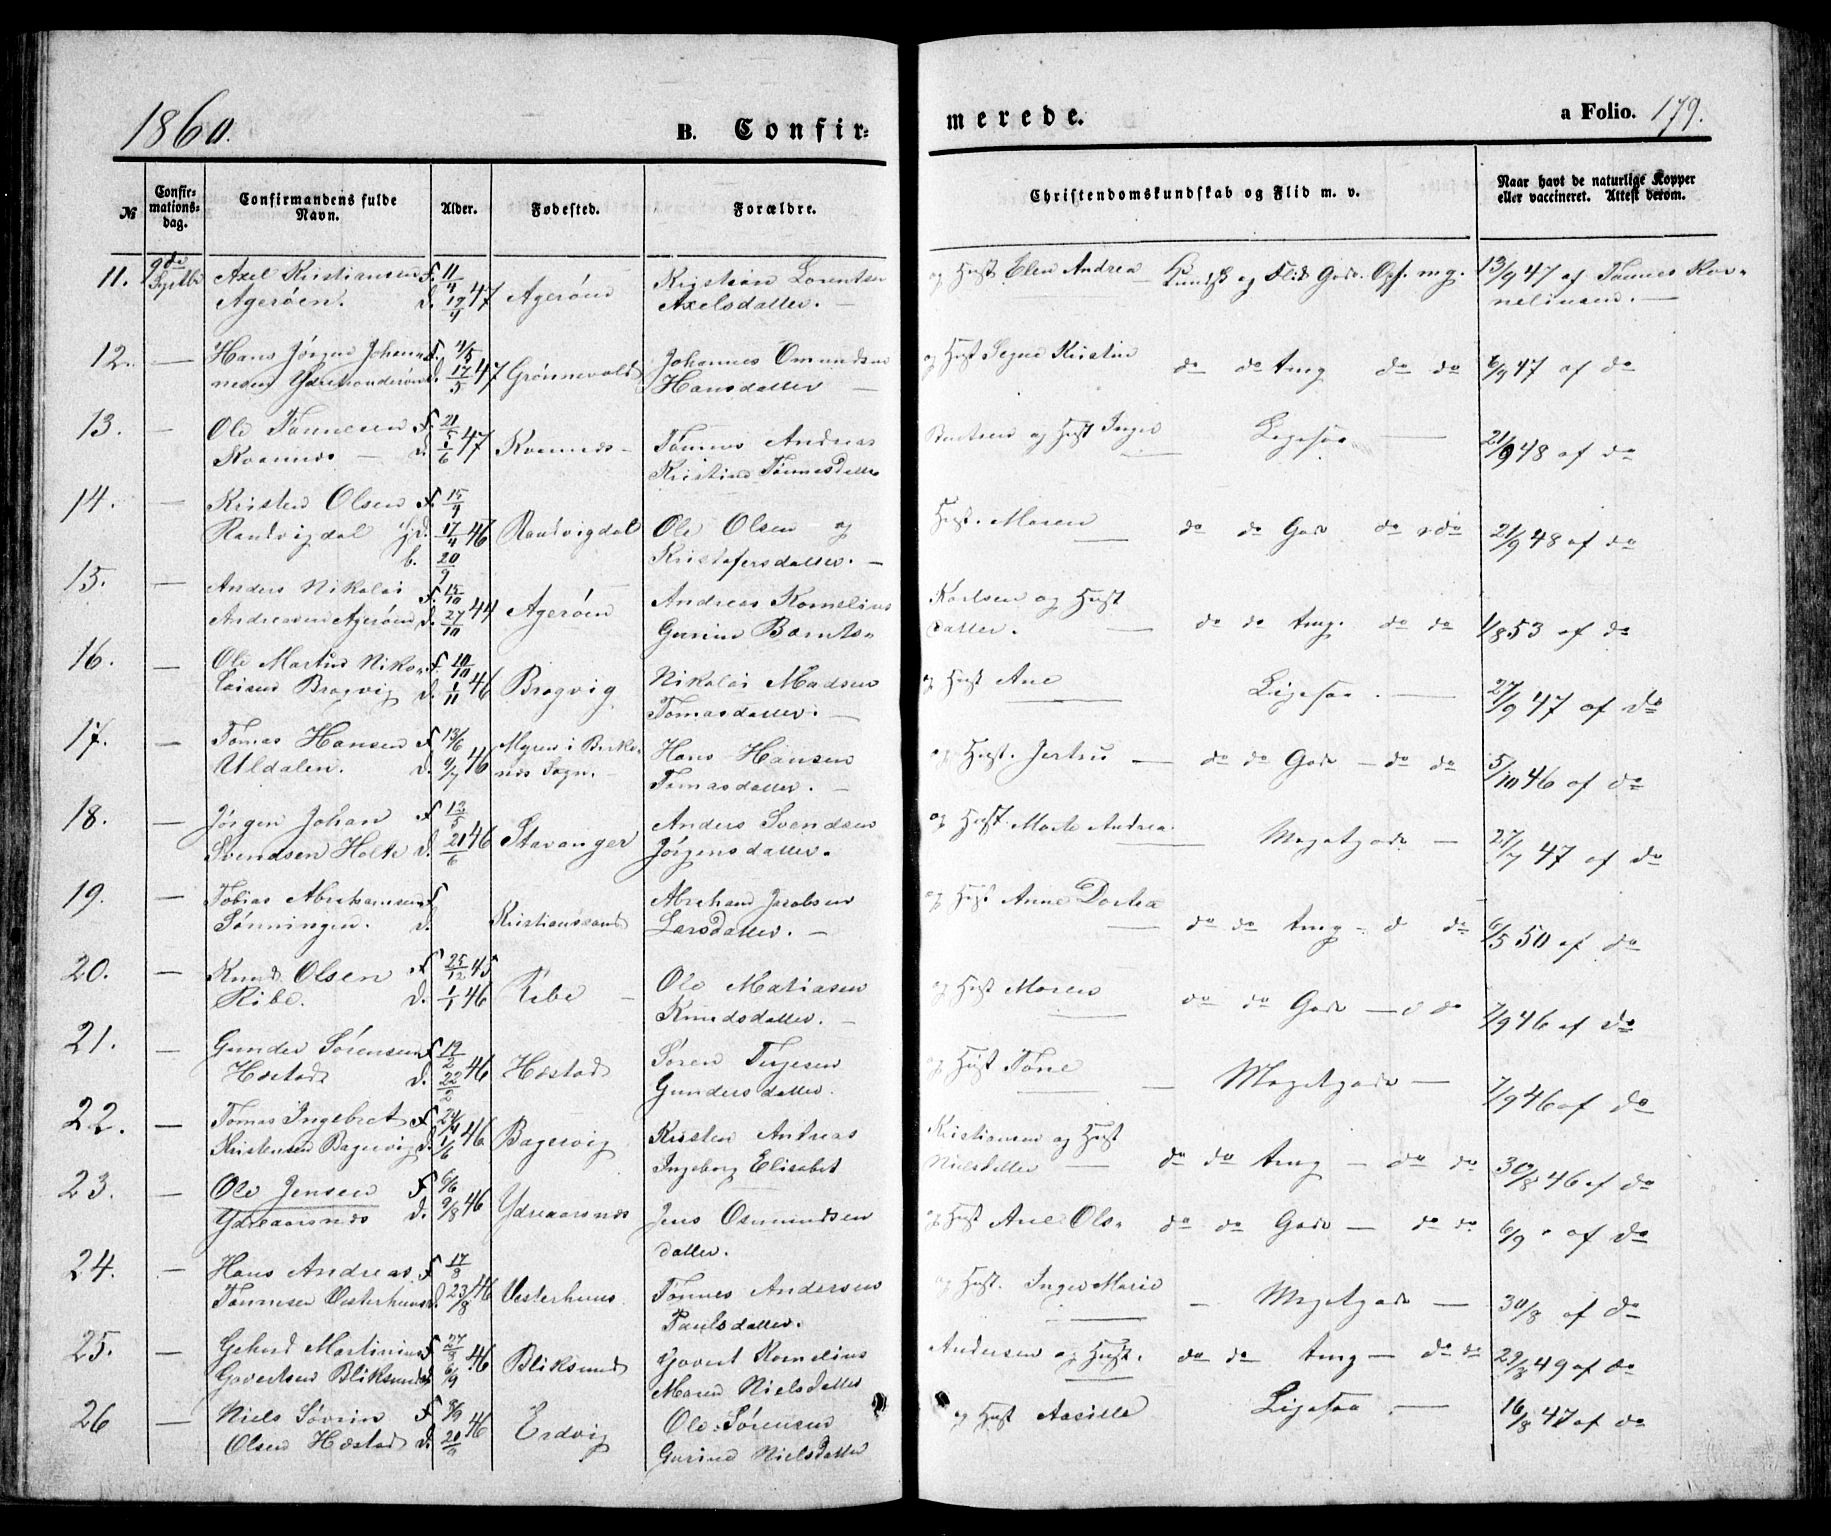 1860.
B. Confir-
merede.
a Folio. 179.
№
Confir-
mations-
dag.
Confirmandens fulde
Navn.
Alder.
Fødested.
Forældre.
Christendomskundskab og Flid m. v.
Naar havt de naturlige Kopper
eller vaccineret. Attest derom.
11. Axel Kristiansen F. 11/4 Kristian Lorentsen og Hust Elen Andrea Kundsk og Flid Gode. Opf. mg. 13/9 47 af Tønnes Kor-
Agerøen. d. 12/4 47 Agerøen Axelsdatter. — neliusen. —
12. — Hans Jørgen Johan- F. 4/5 Johannes Omundsen og Hust Signe Kristine do do tmg do do 6/9 47 af do
nesen d. 17/5 47 Grønnevold Hansdatter —
13. — Ole Tønnesen F. 21/5 Tønnes Andreas og Hust Inger Ligesaa — 21/9 48 af do
— d. 1/6 47 Kristine Tønnesdatter
14. — Kristen Olsen F. 15/4 Ole Olsen og Hust. Maren do do Gode do do 21/9 48 af do
Randvigdal d. 17/4 46 Randvigdal Kristofersdatter. —
b. 20/9
15. — Anders Nikolai F. 15/10 Andreas Kornelius Karlsen og Hust do do tmg. do do 1/8 53 af do
Andreasen Agerøen d. 27/10 44 Agerøen Gurine Bærnts- datter. —
16. — Ole Martin Niko- F. 10/10 Nikolai Madsen og Hust Ane Ligesaa. — 27/9 47 af do
laisen Bragvig d. 1/11 46 Bragvig Tomasdatter. —
17. — Tomas Hansen F 13/6 Myren i Birke- Hans Hansen og Hust. Jertru — do do Gode — do do 5/10 46 af do
Uldalen. d. 9/7 46 næs Sogn. — Tomasdatter. —
18. — Jørgen Johan F 13/5 Anders Svendsen og Hust. Marte Andrea Megetgode — 27/7 47 af do
Svendsen Holte d. 21/6 46 Stavanger Jørgensdatter.
19. — Tobias Abrahamsen F Abraham Jacobsen og Hust Anne Dortea do do tmg - d do 6/5 50 af do
Sønningen. d. Kristianssand Larsdatter. —
20. — Knud Olsen F 25/12 45 Ole Matiasen og Hust Maren do do Gode — d do 7/9 46 af do
Ribe. d. 1/1 46 Ribe — Knudsdatter. —
21. — Gunder Sørensen F 12/2 Søren Terjesen og Hust Tone — Megetgode — 7/9 46 af do
Hæstad d. 22/2 46 Hæstad Gundersdatter.
22. — Tomas Ingebret F 24/4 Kristen Andreas Kristiansen og Hust do do tmg — do do 30/8 46 af do
Kristensen Bagervig d. 1/6 46 Bagervig Ingeborg Elisabet Nielsdatter —
23. — Ole Jensen F 6/6 Jens Osmundsen og Hust Ane Ols- do do Gode — do do 6/9 " af do
Ydreaarsnes d. 9/8 46 Ydreaarsnes datter.
24. — Hans Andreas F 17/8 Tønnes Andersen og Hust. Inger Marie — Megetgode — 30/8 af do
Tønnesen Vesterhuus d. 23/8 46 Vesterhuus. Paulsdatter.
25. — Martinius F 27/8 Govert Kornelius Andersen og Hust. do do tmg — do do 29/8 49 af do
Govertsen Bliksund d. 6/9 46 Bliksund Maren Nielsdatter
26 — Niels Søvrin F Ole Sørensen og Hust Aasille Ligesaa. — 16/8 47 af do
Olsen Hæstad d. 20/9 46 Erdvig Gurine Nielsdatter